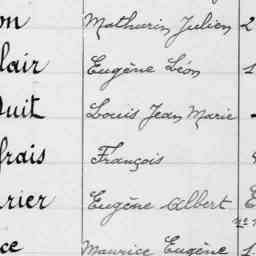 on Mathurin Julien 2
lair Eugène Léon 1
Duit Louis Jean Marie
frais François
rier Eugène Albert E
ce Maurice Eugène 1